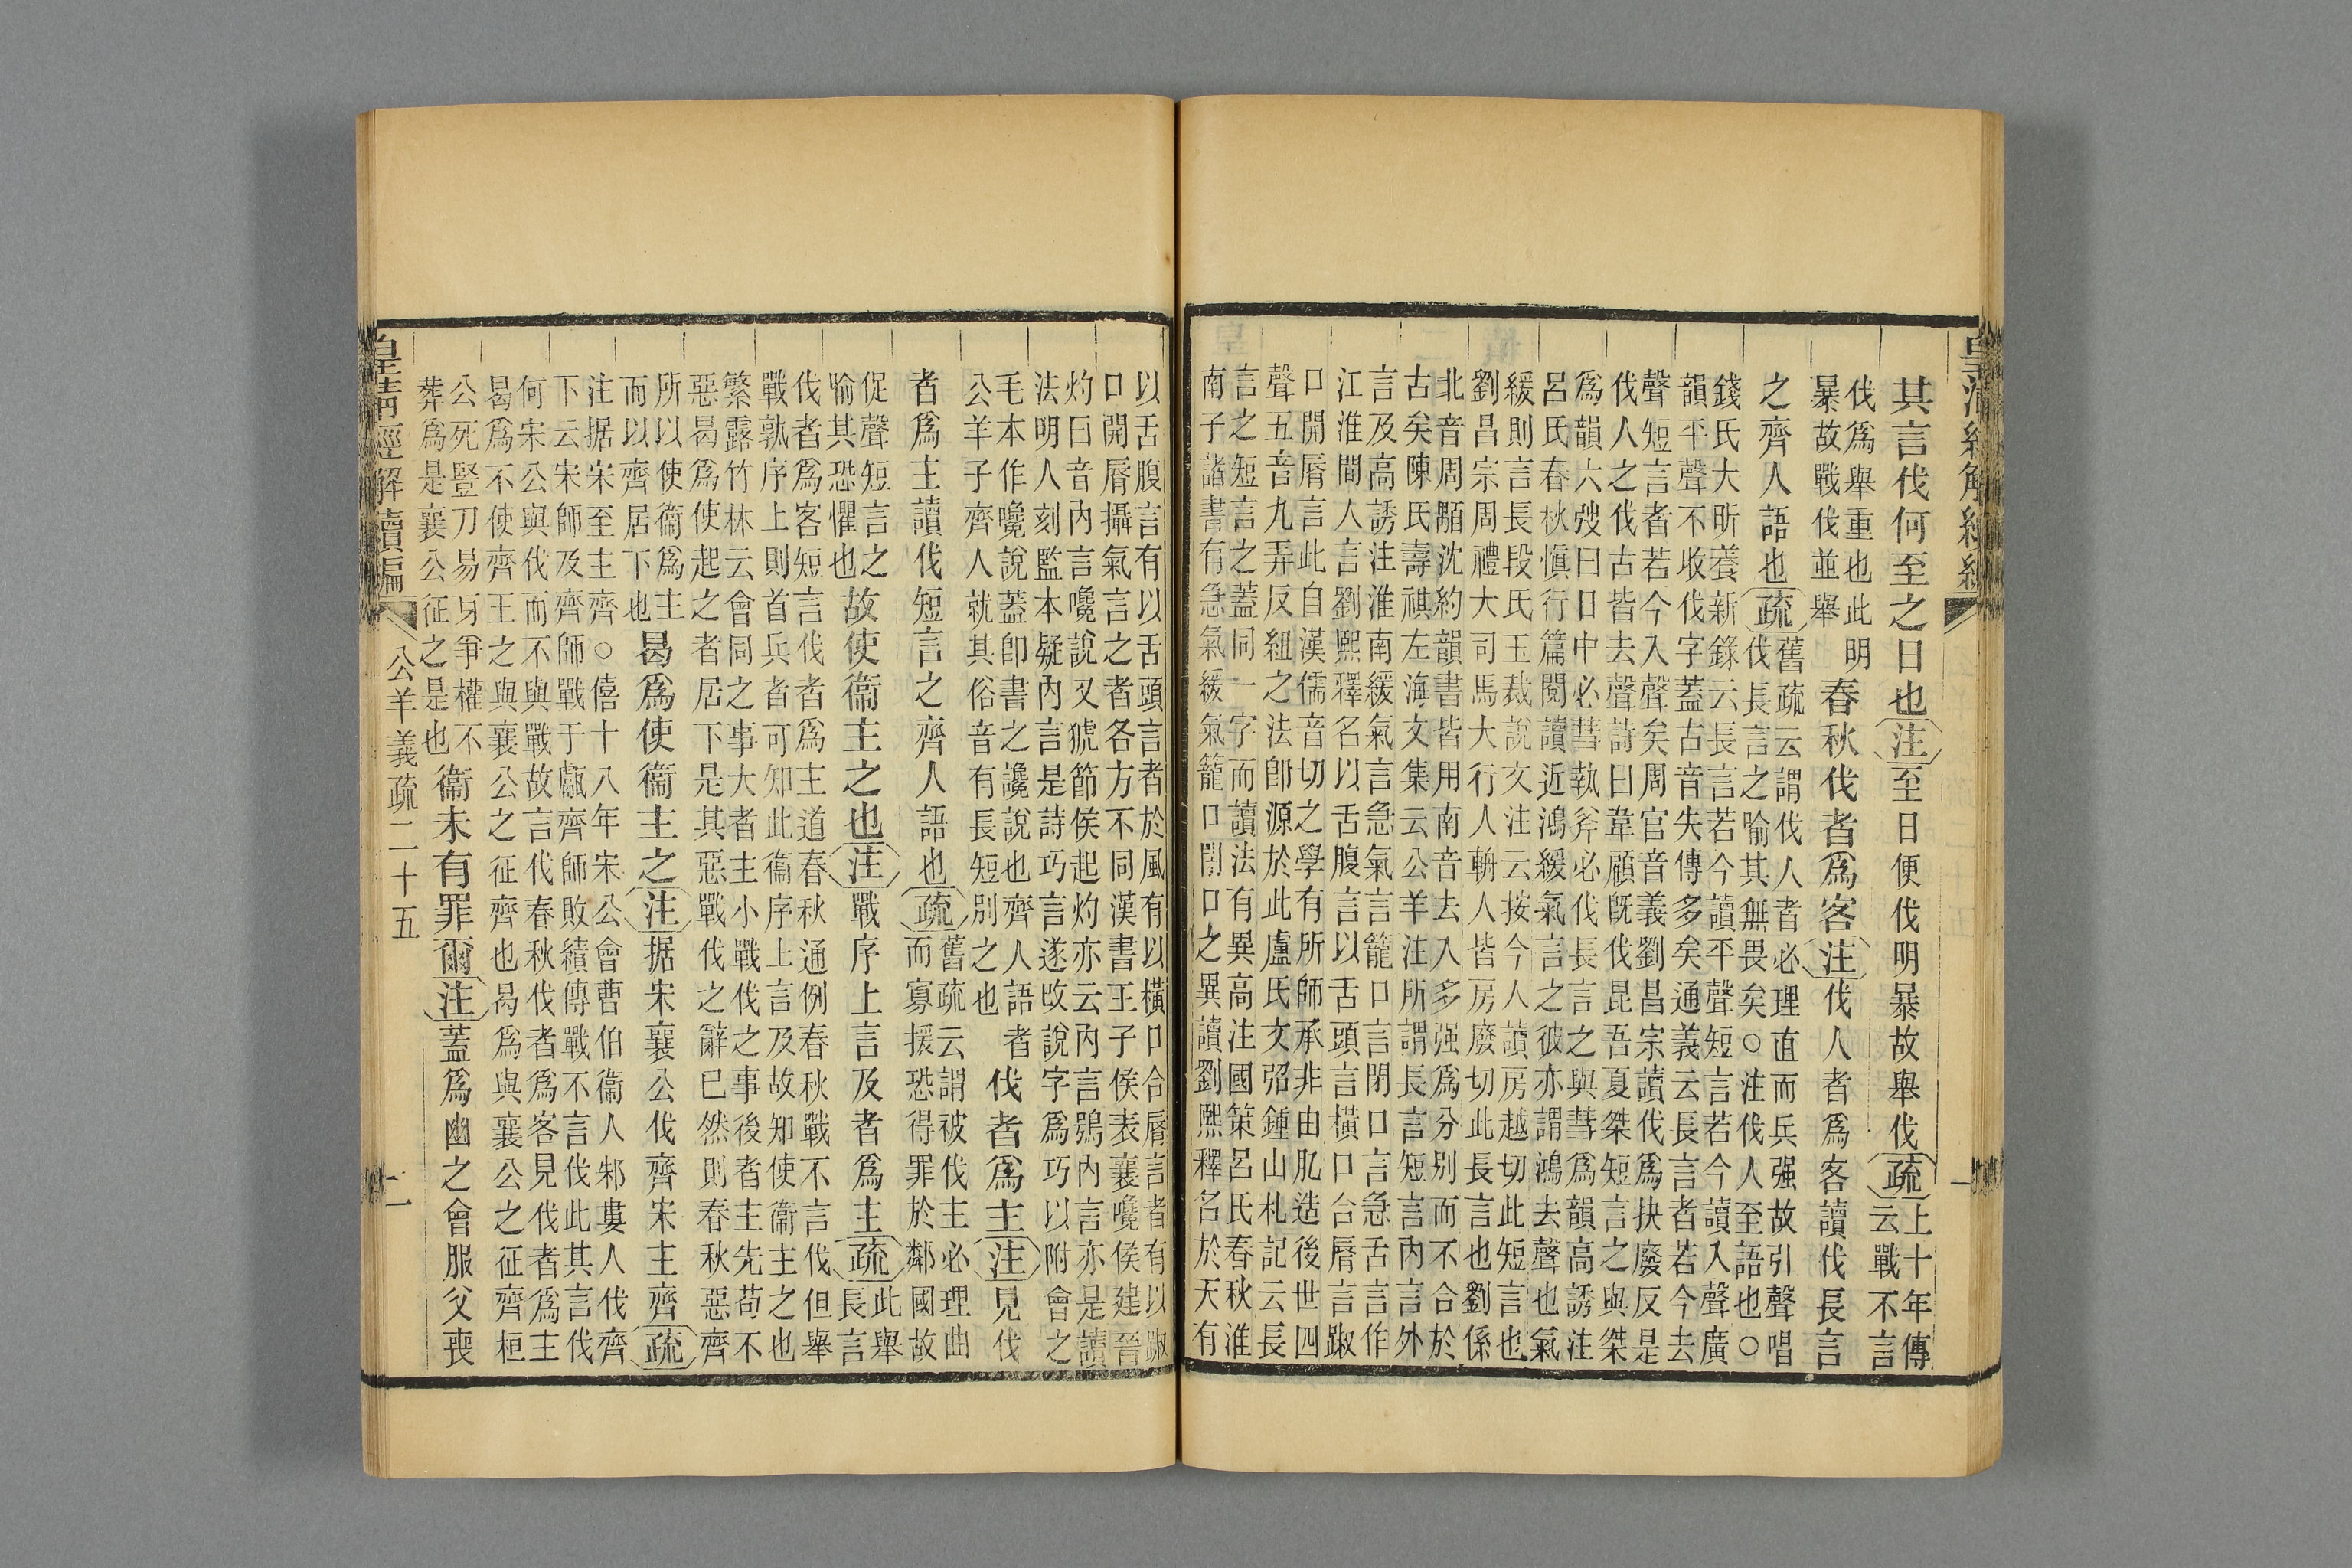 皇清經解續編
一
其言伐何至之日也注至日便伐明暴故舉伐疏上十年傳
云戰不言
伐爲舉重也此明
暴故戰伐並舉
春秋伐者爲客注伐人者爲客讀伐長言
之齊人語也疏舊疏云謂伐人者必理直而兵强故引聲唱
伐長言之喻其無畏矣○注伐人至語也○
錢氏大昕養新錄云長言若今讀平聲短言若今讀入聲廣
韻平聲不收伐字蓋古音失傳多矣通義云長言者若今去
聲短言者若今入聲矣周官音義劉昌宗讀伐爲抉廢反是
伐人之伐古皆去聲詩曰韋顧旣伐昆吾夏桀短言之與桀
爲韻六弢曰日中必彗執斧必伐長言之與彗爲韻高誘注
呂氏春秋愼行篇鬩讀近鴻緩氣言之彼亦謂鴻去聲也氣
緩則言長段氏玉裁說文注云按今人讀房越切此短言也
劉昌宗周禮大司馬大行人輈人皆房廢切此長言也劉係
北音周顒沈約韻書皆用南音去入多强爲分別而不合於
古矣陳氏壽祺左海文集云公羊注所謂長言短言內言外
言及高誘注淮南緩氣言急氣言籠口言閉口言急舌言作
江淮間人言劉熙釋名以舌腹言以舌頭言橫口合脣言踧
口開脣言此自漢儒音切之學有所師承非由肊造後世四
聲五音九弄反紐之法卽源於此盧氏文弨鍾山札記云長
言之短言之蓋同一字而讀法有異高注國策呂氏春秋淮
南子諸書有急氣緩氣籠口閉口之異讀劉熙釋名於天有
以舌腹言有以舌頭言者於風有以橫口合脣言者有以踧
口開脣攝氣言之者各方不同漢書王子侯表襄嚵侯建晉
灼曰音內言嚵說又猇節侯起灼亦云內言鴞內言亦是讀
法明人刻監本疑內言是詩巧言遂改說字爲巧以附會之
毛本作嚵說蓋卽書之讒說也齊人語者
公羊子齊人就其俗音有長短別之也
伐者爲主注見伐
者爲主讀伐短言之齊人語也疏舊疏云謂被伐主必理曲
而寡援恐得罪於鄰國故
促聲短言之
喻其恐懼也
故使衞主之也注戰序上言及者爲主疏此舉
長言
伐者爲客短言伐者爲主道春秋通例春秋戰不言伐但舉
戰孰序上則首兵者可知此衞序上言及故知使衞主之也
繁露竹林云會同之事大者主小戰伐之事後者主先苟不
惡曷爲使起之者居下是其惡戰伐之辭已然則春秋惡齊
所以使衞爲主
而以齊居下也
曷爲使衞主之注据宋襄公伐齊宋主齊疏
注据宋至主齊○僖十八年宋公會曹伯衞人邾婁人伐齊
下云宋師及齊師戰于甗齊師敗績傳戰不言伐此其言伐
何宋公與伐而不與戰故言伐春秋伐者爲客見伐者爲主
曷爲不使齊王之與襄公之征齊也曷爲與襄公之征齊桓
公死豎刀易牙爭權不
葬爲是襄公征之是也
衞未有罪爾注蓋爲幽之會服父喪
皇清經解續編
公羊義疏二十五
二